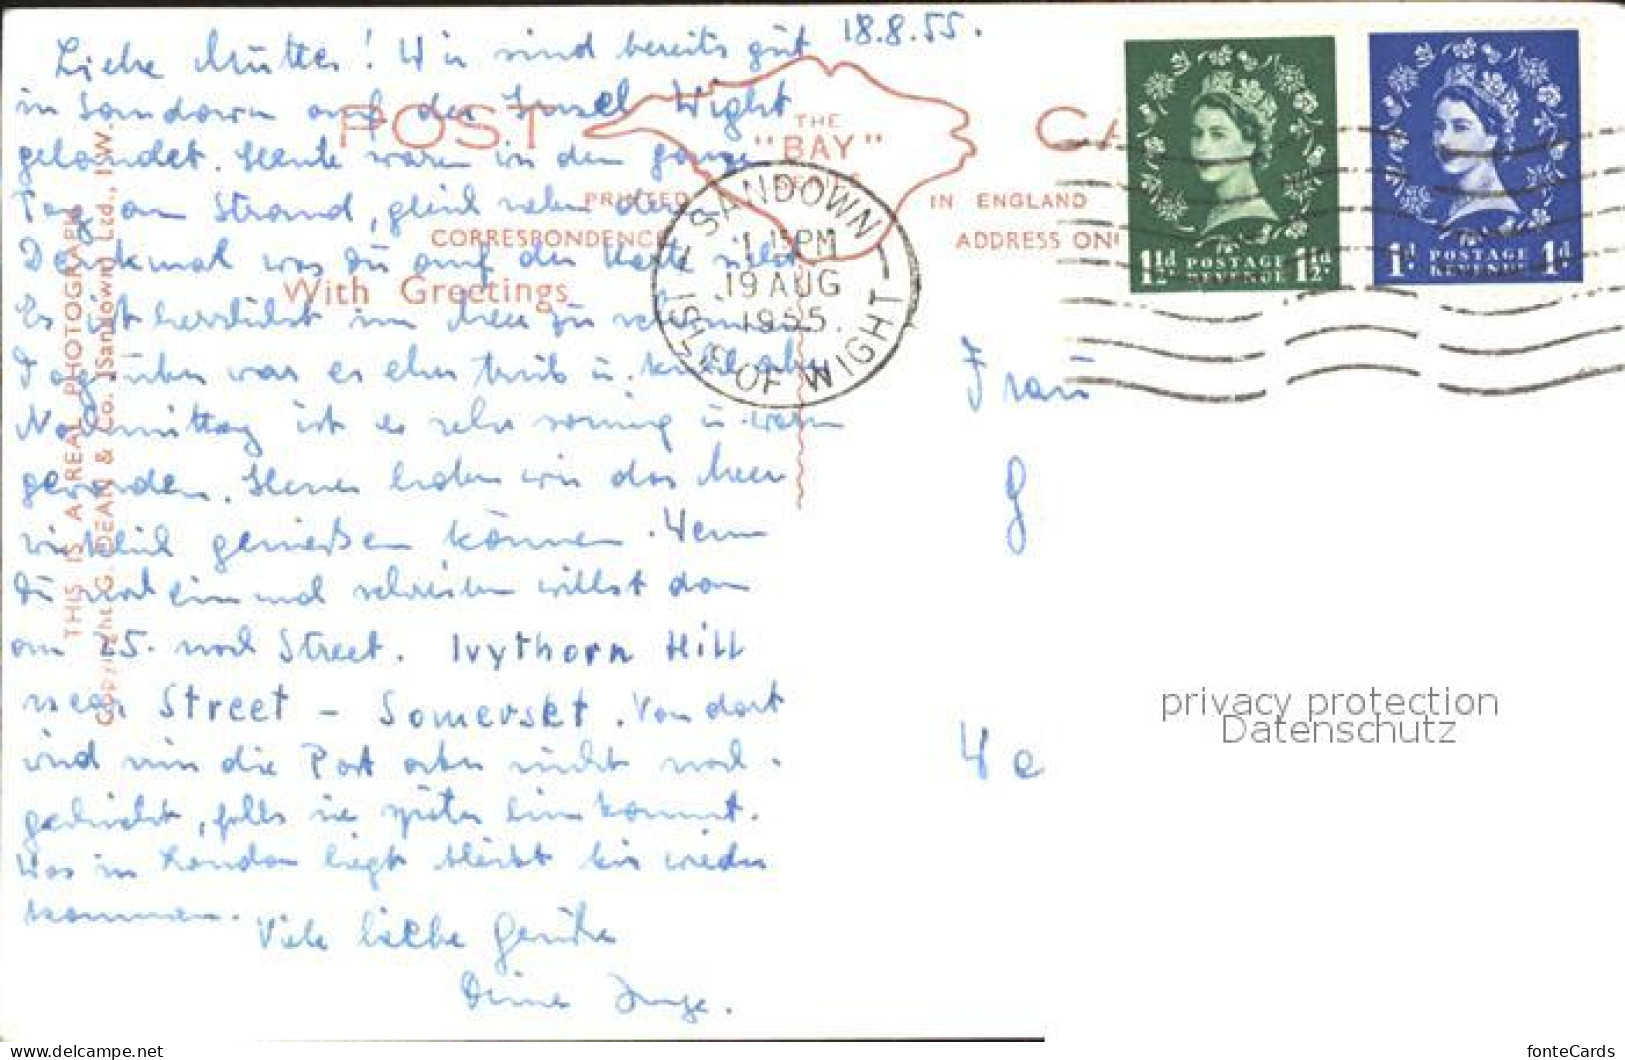 18.8.55.
Liebe Mutter! Wir sind bereits gut
in Sandown auf der Insel Wight
gelandet. Heute waren wir den ganzen
Tag am Strand, gleich neben dem
Denkmal was Du auf der Karte siehst
Es ist herrlich im Meer zu schwimmen.
Tagsüber war es eher trüb u. kühl aber
Nachmittag ist es sehr sonnig u. warm
geworden. Heuer haben wir das Meer
wirklich genießen können. Wenn
Du noch einmal schreiben willst dann
am 25. nach Street. Ivythorn Hill
near Street - Somerset. Von dort
wird mir die Post aber nicht nach-
geschickt, falls sie später hinkommt.
Was in London liegt bleibt bis wir
kommen.
Viele liebe Grüße
Deine Inge.
POST CA
THE
"BAY"
SERIES
PRINTED IN ENGLAND
CORRESPONDENCE
ADDRESS ONL
With Greetings
THIS IS A REAL PHOTOGRAPH
Copyright G. DEAN & Co. (Sandown) Ltd., I.W.
SANDOWN
1 15PM
19 AUG
1955
ISLE OF WIGHT
1½d POSTAGE REVENUE 1½d
1d POSTAGE REVENUE 1d
Frau
G
We
privacy protection
Datenschutz
delcampe.net/collections/oldthing
fonteCards